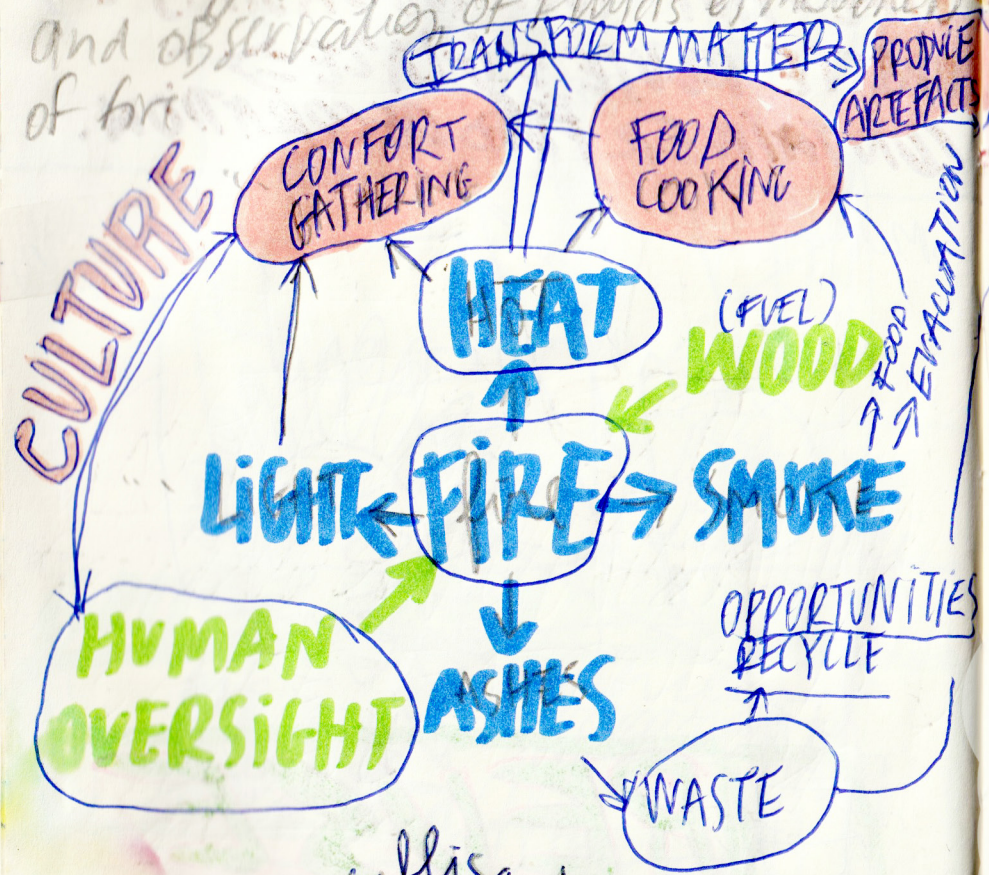 and observation of
of
TRANSFORM MATTER
PRODUCE
ARTEFACTS
CONFORT
GATHERING
FOOD
COOKING
CULTURE
HEAT
(FUEL)
WOOD
FOOD
EVACUATION
LIGHT
FIRE
SMOKE
HUMAN
OVERSIGHT
ASHES
OPPORTUNITIES
RECYCLE
WASTE